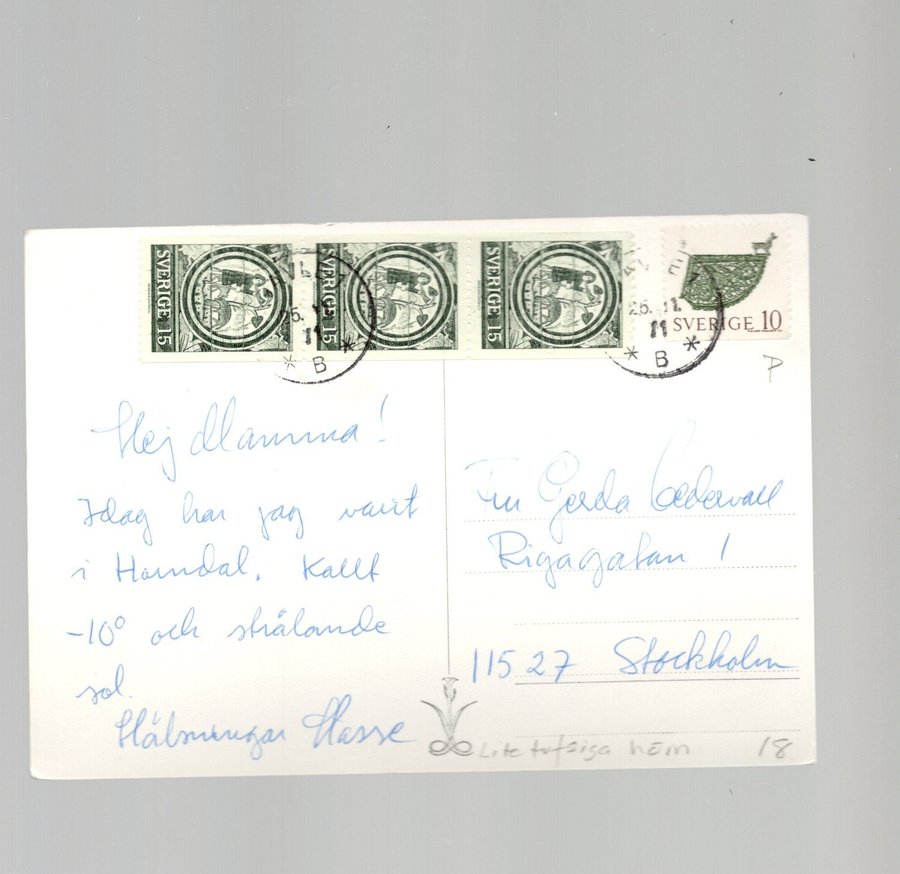 SVERIGE 15
SVERIGE 15
SVERIGE 15
SVERIGE 10
11
* B *
11
* B *
P
Hej Mamma!
Idag har jag varit
i Hamdal. Kallt
-10° och strålande
sol.
Hälsningar Hasse
Fru Gerda Cedervall
Rigagatan 1
115 27 Stockholm
Lite hem
18